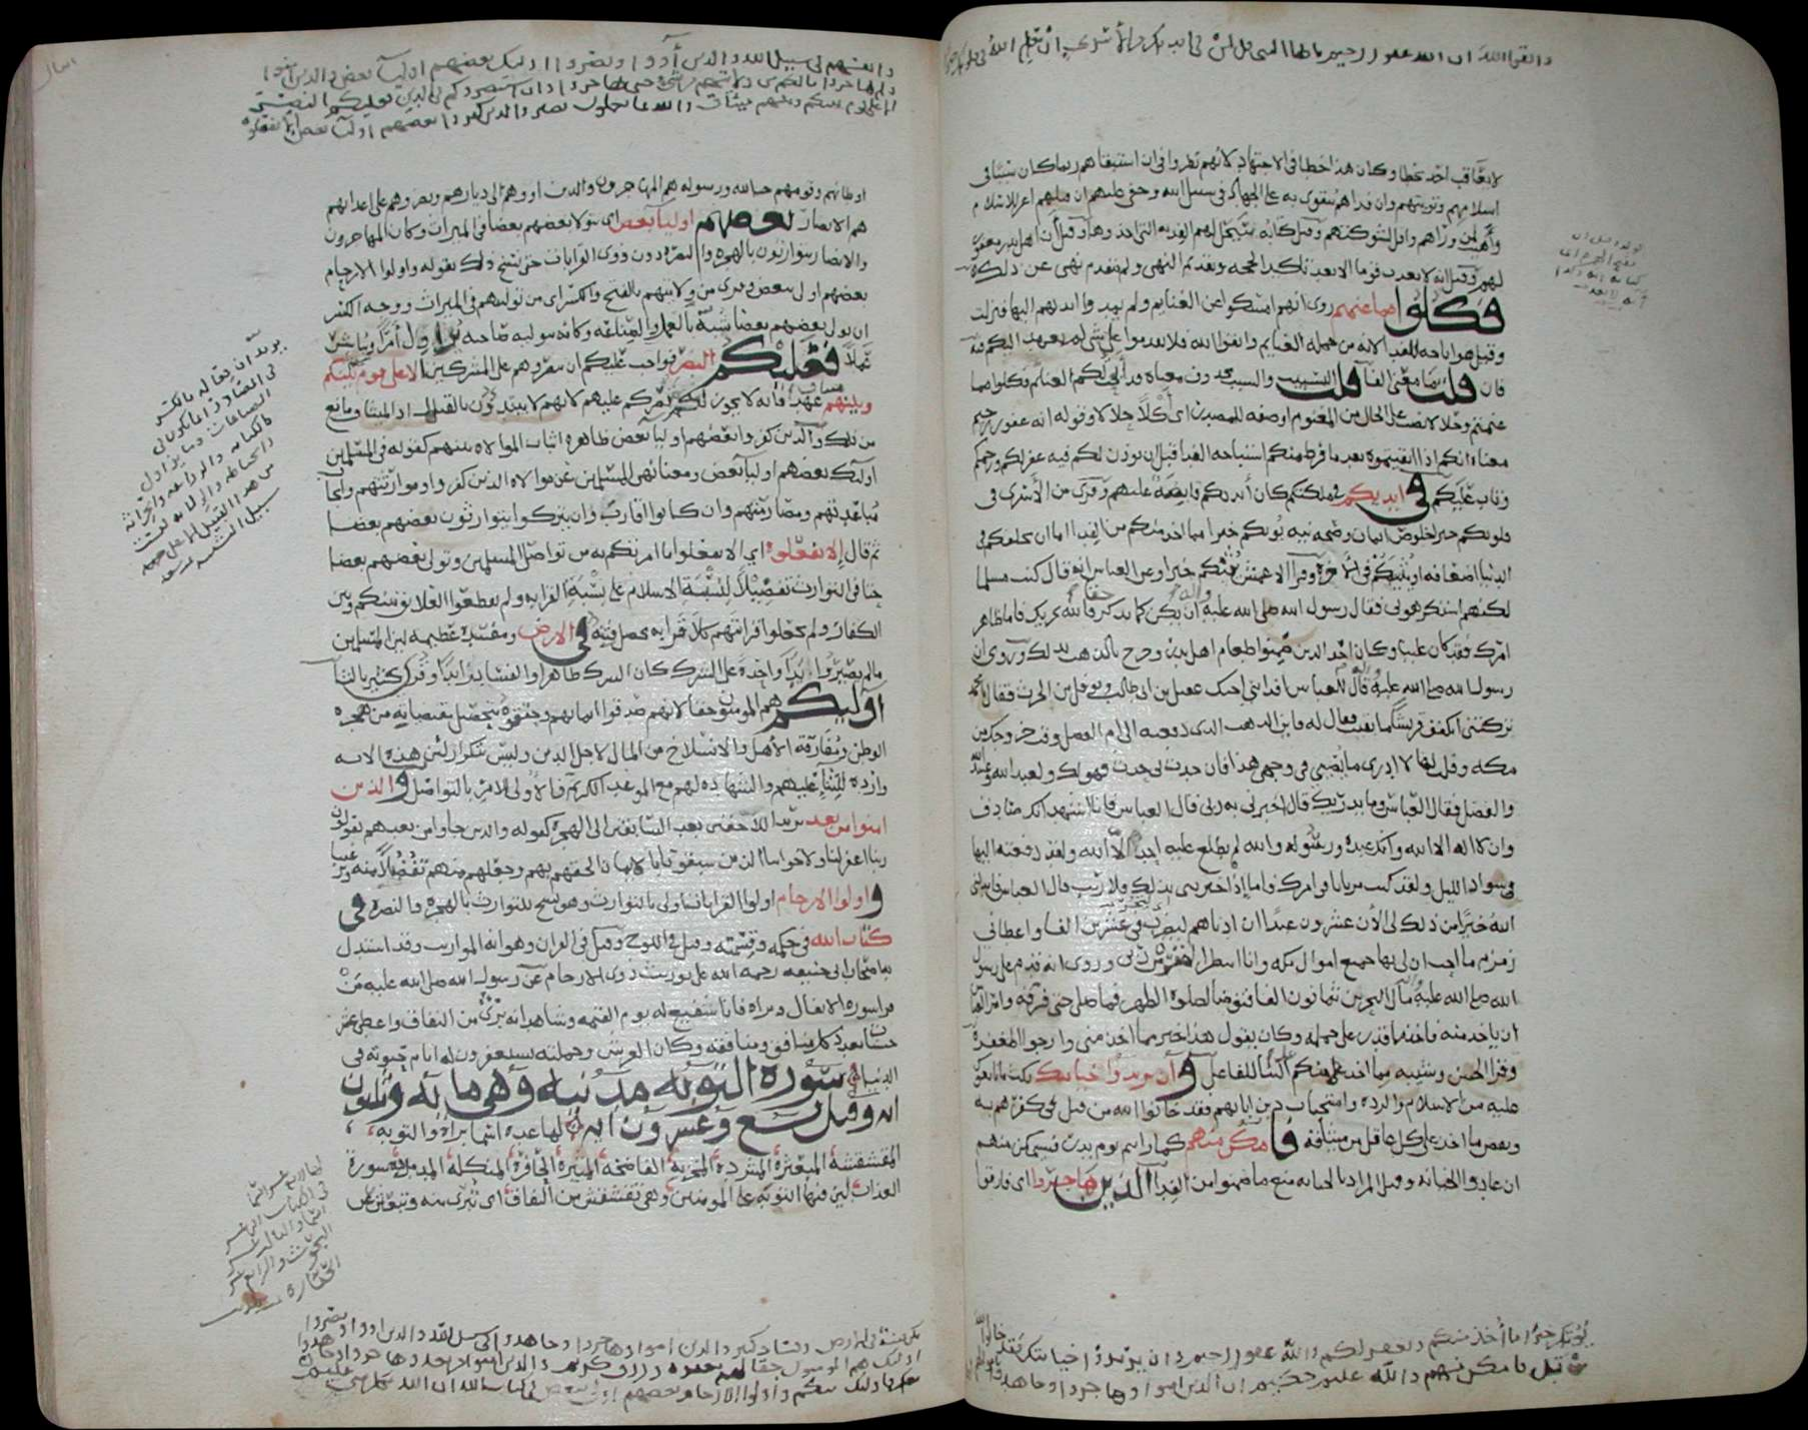 واتقوا الله ان الله غفور رحيم يا ايها النبي قل لمن في ايديكم من الأسرى إن يعلم الله في قلوبكم خيرا
لا يعاقب احد بخطا وكان هذا خطا في الاجتهاد لانهم نظروا في ان استبقاهم ربما كان سببا في
اسلامهم وتوبتهم وان فداهم يتقوى به على الجهاد في سبيل الله وخفي عليهم ان قتلهم اعز للاسلام
واهيب لمن وراهم وافل لشوكتهم وقيل كتابه انه سيحل لهم الفدية التي اخذوها وقيل ان اهل بدر مغفور
لهم وقيل انه لا يعذب قوما الا بعد تاكيد الحجة وتقديم النهي ولم يتقدم نهي عن ذلك
فكلوا مما غنمتم روى انهم امسكوا عن الغنايم ولم يمدوا ايديهم اليها فنزلت
وقيل هو اباحة للفدا لانه من جملة الغنايم واتقوا الله فلا تقدموا على شي لم يعهد اليكم فيه
فان قلت ما معنى الفا قلت التسبيب والسبب محذوف معناه قد ابحت لكم الغنايم فكلوا مما
غنمتم وحلالا نصب على الحال من المغنوم او صفة للمصدر اى أكلا حلالا وقوله انه غفور رحيم
معناه انكم اذا اتقيتموه بعد ما فرط منكم من استباحة الفدا قبل ان يوذن لكم فيه غفر لكم ورحمكم
وتاب عليكم في ايديكم في ملكتكم كان أيديكم قابضة عليهم وقرى من الأسرى في
قلوبكم خيرا خلوص ايمان وصحة نية يوتكم خيرا مما اخذ منكم من الفدا اما ان يخلفكم في
الدنيا اضعافه او يثيبكم في الآخرة وقرا الاعمش يثبكم خيرا وعن العباس انه قال كنت مسلما
لكنهم استكرهوني فقال رسول الله صلى الله عليه ان يكن ما تذكر حقا فالله يجزيك فاما ظاهر
امرك فقد كان علينا وكان احد الذين ضمنوا طعام اهل بدر وخرج بالذهب لذلك وروى ان
رسول الله صلى الله عليه قال للعباس افد ابني اخيك عقيل بن ابي طالب ونوفل بن الحرث فقال يا محمد
تركتني اتكفف قريشا ما بقيت فقال له فاين الذهب الذى دفعته الى ام الفضل وقت خروجك من
مكة وقلت لها لا ادرى ما يصيبني في وجهي هذا فان حدث بي حدث فهو لك ولعبد الله وعبيد الله
والفضل فقال العباس وما يدريك قال اخبرني به ربي قال العباس فانا اشهد انك صادق
وان لا اله الا الله وانك عبده ورسوله والله لم يطلع عليه احد الا الله ولقد دفعته اليها
في سواد الليل ولقد كنت مرتابا في امرك فاما إذ اخبرتني بذلك فلا ريب قال العباس فابدلني
الله خيرا من ذلك لي الأن عشرون عبدا ان ادناهم ليضرب في عشرين الفا واعطاني
زمزم ما احب ان لي بها جميع اموال مكة وانا انتظر المغفرة من ربي وروى انه قدم على رسول
الله صلى الله عليه مال البحرين ثمانون الفا فتوضا لصلوة الظهر فما صلى حتى فرقه وامر العباس
ان ياخذ منه فاخذ ما قدر على حمله وكان يقول هذا خير مما اخذ مني وارجو المغفرة
وقرا الحسن وشيبة مما اخذ منكم على البنا للفاعل وان يريدوا خيانتك نكث ما بايعوك
عليه من الاسلام والردة واستحباب دين ابايهم فقد خانوا الله من قبل في كفرهم به
ونقض ما اخذ على كل عاقل من ميثاقه فامكن منهم كما رايتم يوم بدر فسيمكن منهم
ان عادوا الخيانة وقيل المراد بالخيانة منع ما ضمنوا من الفدا الذين هاجروا اى فارقوا
يوتكم خيرا مما أخذ منكم ويغفر لكم والله غفور رحيم وان يريدوا خيانتك فقد خانوا الله
من قبل فامكن منهم والله عليم حكيم ان الذين امنوا وهاجروا وجاهدوا باموالهم
وانفسهم في سبيل الله والذين آووا ونصروا اوليك بعضهم اوليا بعض والذين امنوا
ولم يهاجروا ما لكم من ولايتهم من شي حتى يهاجروا وان استنصروكم في الدين فعليكم النصر
الا على قوم بينكم وبينهم ميثاق والله بما تعملون بصير والذين كفروا بعضهم اوليا بعض إلا تفعلوه
اوطانهم وقومهم حبا لله ورسوله هم المهاجرون والذين اووهم الى ديارهم ونصروهم على اعدائهم
هم الانصار بعضهم اوليا بعض اى يتولى بعضهم بعضا في الميراث وكان المهاجرون
والانصار يتوارثون بالهجرة والنصرة دون ذوى القرابات حتى نسخ ذلك بقوله واولوا الارحام
بعضهم اولى ببعض وقرى من ولايتهم بالفتح والكسر اى من توليهم في الميراث ووجه الكسر
ان تولي بعضهم بعضا شبه بالعمل والصناعة وكانه بتوليه صاحبه يزاول أمرا ويباشر
عملا فعليكم النصر فواجب عليكم ان تنصروهم على المشركين الا على قوم بينكم
وبينهم ميثاق عهد فانه لا يجوز لكم نصركم عليهم لانهم لا يبتدون بالقتال اذ الميثاق مانع
من ذلك والذين كفروا بعضهم اوليا بعض ظاهره اثبات الموالاة بينهم كقوله في المسلمين
اوليك بعضهم اوليا بعض ومعناه نهي المسلمين عن موالاة الذين كفروا وموارثتهم وايجاب
مباعدتهم ومصارمتهم وان كانوا اقارب وان يتركوا يتوارثون بعضهم بعضا
ثم قال إلا تفعلوه اي الا تفعلوا ما امرتكم به من تواصل المسلمين وتولي بعضهم بعضا
حتى في التوارث تفضيلا لنسبة الاسلام على نسبة القرابة ولم تقطعوا العلايق بينكم وبين
الكفار ولم تجعلوا قرابتهم كلا قرابة تحصل فتنة في الارض ومفسدة عظيمة لان المسلمين
ما لم يصيروا يدا واحدة على الشرك كان الشرك ظاهرا والفساد زايدا وقرى كثير بالثا
اوليك هم المومنون حقا لانهم صدقوا ايمانهم وحققوه بتحصيل مقتضياته من هجرة
الوطن ومفارقة الأهل والانسلاخ من المال لاجل الدين وليس بتكرار لان هذه الاية
واردة للثنا عليهم والشهادة لهم مع الموعد الكريم والأولى للامر بالتواصل والذين
امنوا من بعد يريد اللاحقين بعد السابقين الى الهجرة كقوله والذين جاوا من بعدهم يقولون
ربنا اغفر لنا ولاخواننا الذين سبقونا بالايمان الحقهم بهم وجعلهم منهم تفضلا منه وترغيبا
واولوا الارحام اولوا القرابات اولى بالتوارث وهو نسخ للتوارث بالهجرة والنصرة في
كتاب الله في حكمه وقسمته وقيل في اللوح وقيل في القران وهو اية المواريث وقد استدل
به اصحاب ابي حنيفه رحمه الله على توريث ذوى الارحام عن رسول الله صلى الله عليه من
قرا سورة الانفال وبراة فانا شفيع له يوم القيمة وشاهد انه برئ من النفاق واعطي عشر
حسنات بعدد كل منافق ومنافقة وكان العرش وحملته يستغفرون له ايام حيوته في
الدنيا سورة التوبة مدنية وهي ماية وثلثون
اية وقيل تسع وعشرون اية لها عدة اسما براة والتوبة
المقشقشة المبعثرة المشردة المخزية الفاضحة المثيرة الحافرة المنكلة المدمدمة سورة
العذاب لان فيها التوبة على المومنين وهي تقشقش من النفاق اى تبرى منه وتبعثر عن
يريد ان فعاله بالكسر
في الصناعات وما يزاول
كالكتابة والزراعة والحراثة
والخياطة
تكن فتنة في الارض وفساد كبير والذين امنوا وهاجروا وجاهدوا في سبيل الله والذين اووا ونصروا
اوليك هم المومنون حقا لهم مغفرة ورزق كريم والذين امنوا من بعد وهاجروا وجاهدوا
معكم فاوليك منكم واولوا الارحام بعضهم اولى ببعض في كتاب الله ان الله بكل شي عليم